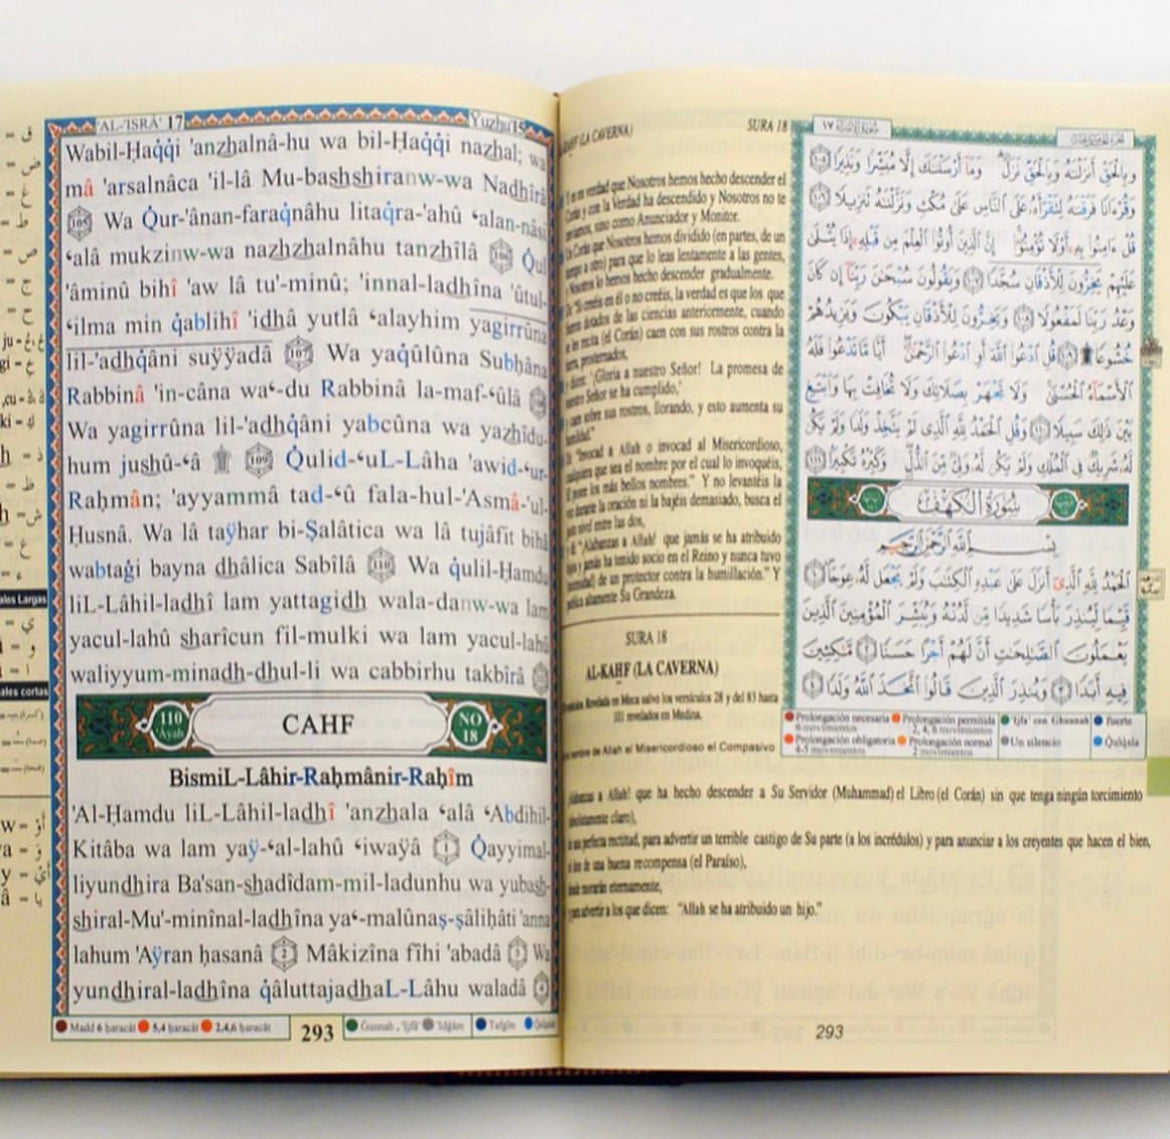 'AL-'ISRÂ' 17
Yuzhu'15
Wabil-Ḥaq̇q̇i 'anzhalnâ-hu wa bil-Ḥaq̇q̇i nazhal; wa
mâ 'arsalnâca 'il-lâ Mu-bashshiranw-wa Nadhîrâ
105 Wa Q̇ur-'ânan-faraq̇nâhu litaq̇ra-'ahû ʻalan-nâsi
ʻalâ mukzinw-wa nazhzhalnâhu tanzhîlâ 106 Q̇ul
'âminû bihî 'aw lâ tu'-minû; 'innal-ladhîna 'ûtul-
ʻilma min q̇ablihî 'idhâ yutlâ ʻalayhim yagirrûna
lil-'adhq̇âni suÿÿadâ 107 Wa yaq̇ûlûna Subḥâna
Rabbinâ 'in-câna waʻ-du Rabbinâ la-maf-ʻûlâ
Wa yagirrûna lil-'adhq̇âni yabcûna wa yazhîdu-
hum jushû-ʻâ 109 Q̇ulid-ʻuL-Lâha 'awid-ʻur-
Raḥmân; 'ayyammâ tad-ʻû fala-hul-'Asmâ-'ul-
Ḥusnâ. Wa lâ taÿhar bi-Ṣalâtica wa lâ tujâfit bihâ
wabtaġi bayna dhâlica Sabîlâ 110 Wa q̇ulil-Ḥamdu
liL-Lâhil-ladhî lam yattagidh wala-danw-wa lam
yacul-lahû sharîcun fil-mulki wa lam yacul-lahû
waliyyum-minadh-dhul-li wa cabbirhu takbîrâ
110 'Âyah
CAHF
NO 18
BismiL-Lâhir-Raḥmânir-Raḥîm
'Al-Ḥamdu liL-Lâhil-ladhî 'anzhala ʻalâ ʻAbdihil-
Kitâba wa lam yaÿ-ʻal-lahû ʻiwaÿâ 1 Q̇ayyimal-
liyundhira Ba'san-shadîdam-mil-ladunhu wa yubash-
shiral-Mu'-minînal-ladhîna yaʻ-malûnaṣ-ṣâliḥâti 'anna
lahum 'Aÿran ḥasanâ 2 Mâkizîna fîhi 'abadâ 3 Wa
yundhiral-ladhîna q̇âluttajadhaL-Lâhu waladâ 4
Madd 6 baracât 5,4 baracât 2,4,6 baracât
293
(LA CAVERNA)
SURA 18
es verdad que Nosotros hemos hecho descender el
Corán y con la Verdad ha descendido y Nosotros no te
sino como Anunciador y Monitor.
Corán que Nosotros hemos dividido (en partes, de un
para que lo leas lentamente a las gentes,
Nosotros lo hemos hecho descender gradualmente.
en él o no creéis, la verdad es que los que
dotados de las ciencias anteriormente, cuando
se les recita (el Corán) caen con sus rostros contra la
"¡Gloria a nuestro Señor! La promesa de
nuestro Señor se ha cumplido,"
caen sobre sus rostros, llorando, y esto aumenta su
"Invocad a Allah o invocad al Misericordioso,
que sea el nombre por el cual lo invoquéis,
los más bellos nombres." Y no levantéis la
durante la oración ni la bajéis demasiado, busca el
nivel entre las dos,
"¡Alabanzas a Allah! que jamás se ha atribuido
y jamás ha tenido socio en el Reino y nunca tuvo
de un protector contra la humillación." Y
altamente Su Grandeza.
SURA 18
AL-KAHF (LA CAVERNA)
Revelada en Meca salvo los versículos 28 y del 83 hasta
101 revelados en Medina.
nombre de Allah el Misericordioso el Compasivo
a Allah! que ha hecho descender a Su Servidor (Muhammad) el Libro (el Corán) sin que tenga ningún torcimiento
claro),
perfecta rectitud, para advertir un terrible castigo de Su parte (a los incrédulos) y para anunciar a los creyentes que hacen el bien,
de una buena recompensa (el Paraíso),
eternamente,
a los que dicen: "Allah se ha atribuido un hijo."
293
وَبِالْحَقِّ أَنزَلْنَاهُ وَبِالْحَقِّ نَزَلَ وَمَا أَرْسَلْنَاكَ إِلَّا مُبَشِّرًا وَنَذِيرًا
وَقُرْآنًا فَرَقْنَاهُ لِتَقْرَأَهُ عَلَى النَّاسِ عَلَىٰ مُكْثٍ وَنَزَّلْنَاهُ تَنزِيلًا
قُلْ آمِنُوا بِهِ أَوْ لَا تُؤْمِنُوا إِنَّ الَّذِينَ أُوتُوا الْعِلْمَ مِن قَبْلِهِ إِذَا يُتْلَىٰ
عَلَيْهِمْ يَخِرُّونَ لِلْأَذْقَانِ سُجَّدًا وَيَقُولُونَ سُبْحَانَ رَبِّنَا إِن كَانَ
وَعْدُ رَبِّنَا لَمَفْعُولًا وَيَخِرُّونَ لِلْأَذْقَانِ يَبْكُونَ وَيَزِيدُهُمْ
خُشُوعًا قُلِ ادْعُوا اللَّهَ أَوِ ادْعُوا الرَّحْمَٰنَ أَيًّا مَّا تَدْعُوا فَلَهُ
الْأَسْمَاءُ الْحُسْنَىٰ وَلَا تَجْهَرْ بِصَلَاتِكَ وَلَا تُخَافِتْ بِهَا وَابْتَغِ
بَيْنَ ذَٰلِكَ سَبِيلًا وَقُلِ الْحَمْدُ لِلَّهِ الَّذِي لَمْ يَتَّخِذْ وَلَدًا وَلَمْ يَكُن
لَّهُ شَرِيكٌ فِي الْمُلْكِ وَلَمْ يَكُن لَّهُ وَلِيٌّ مِّنَ الذُّلِّ وَكَبِّرْهُ تَكْبِيرًا
سُورَةُ الْكَهْفِ
بِسْمِ اللَّهِ الرَّحْمَٰنِ الرَّحِيمِ
الْحَمْدُ لِلَّهِ الَّذِي أَنزَلَ عَلَىٰ عَبْدِهِ الْكِتَابَ وَلَمْ يَجْعَل لَّهُ عِوَجًا
قَيِّمًا لِّيُنذِرَ بَأْسًا شَدِيدًا مِّن لَّدُنْهُ وَيُبَشِّرَ الْمُؤْمِنِينَ الَّذِينَ
يَعْمَلُونَ الصَّالِحَاتِ أَنَّ لَهُمْ أَجْرًا حَسَنًا مَّاكِثِينَ
فِيهِ أَبَدًا وَيُنذِرَ الَّذِينَ قَالُوا اتَّخَذَ اللَّهُ وَلَدًا
Prolongación necesaria 6 movimientos
Prolongación permitida 2, 4, 6 movimientos
'Ijfa' con Ghunnah
fuerte
Prolongación obligatoria 4-5 movimientos
Prolongación normal 2 movimientos
Un silencio
Qalqala